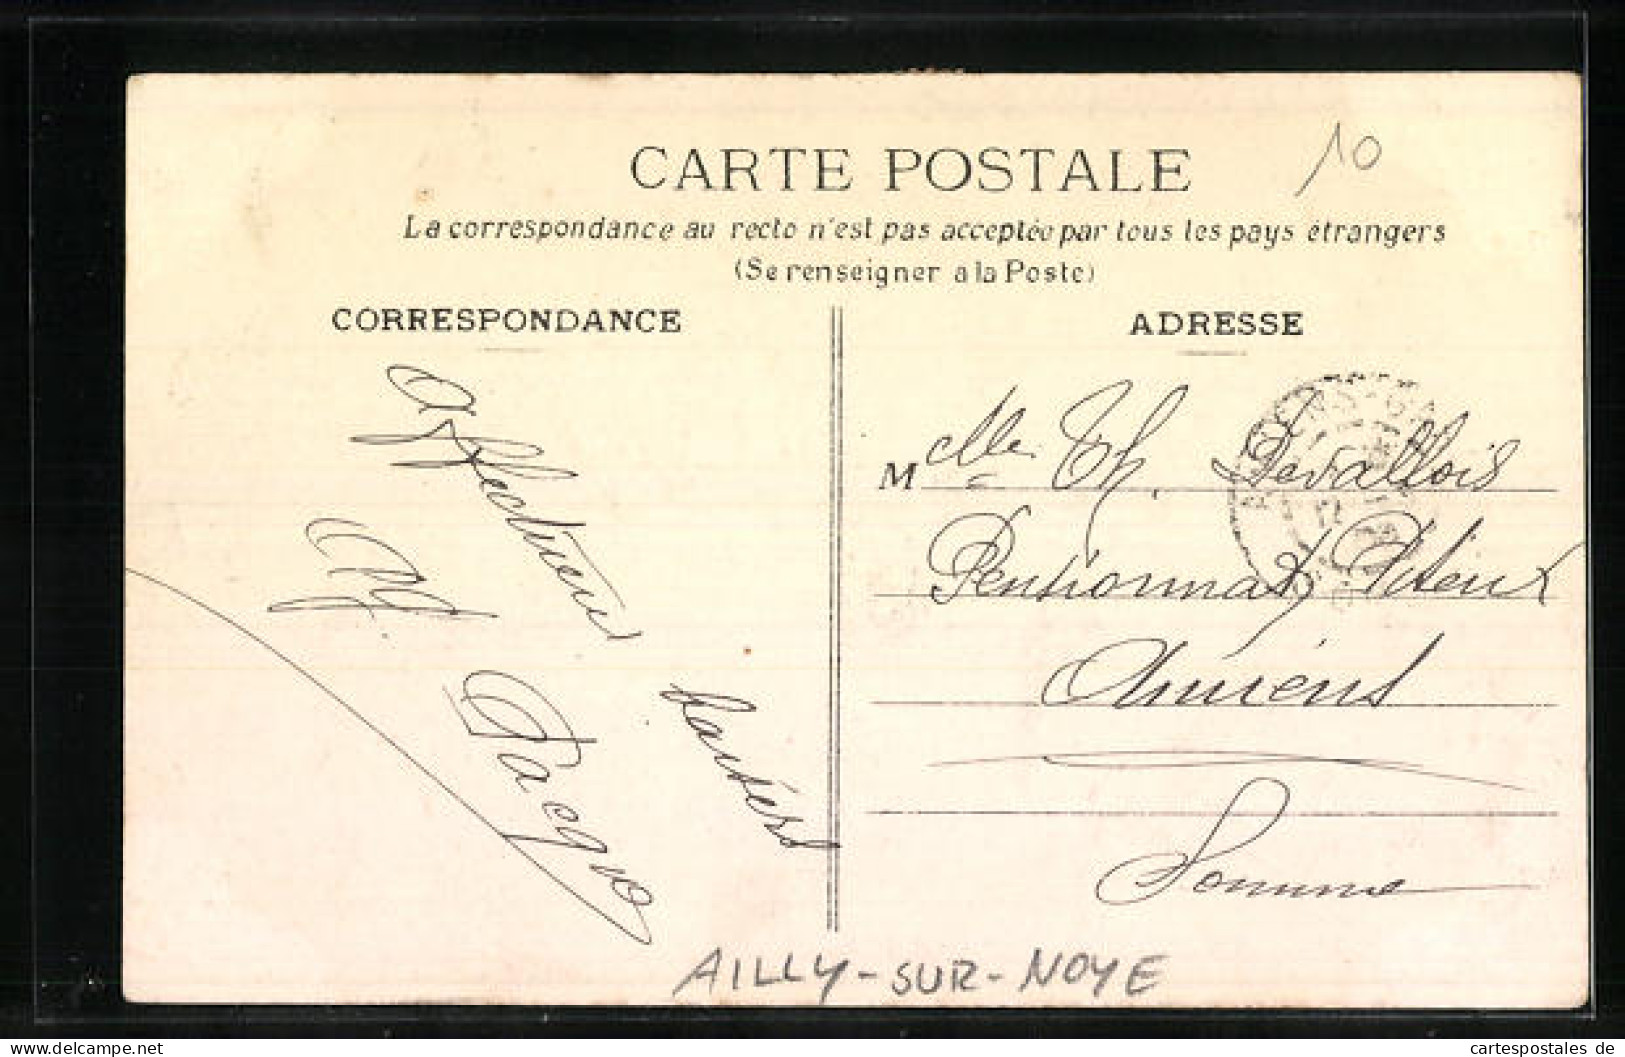 CARTE POSTALE
10
La correspondance au recto n'est pas acceptée par tous les pays étrangers
(Se renseigner a la Poste)
CORRESPONDANCE
ADRESSE
Affectueux baisers
Pacquo
M elle Th. Devallois
Pensionnat
Amiens
Somme
AILLY-SUR-NOYE
cartespostales de